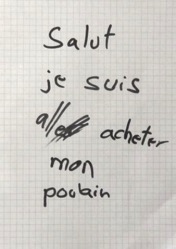 Salut
je suis
acheter
mon
poulain